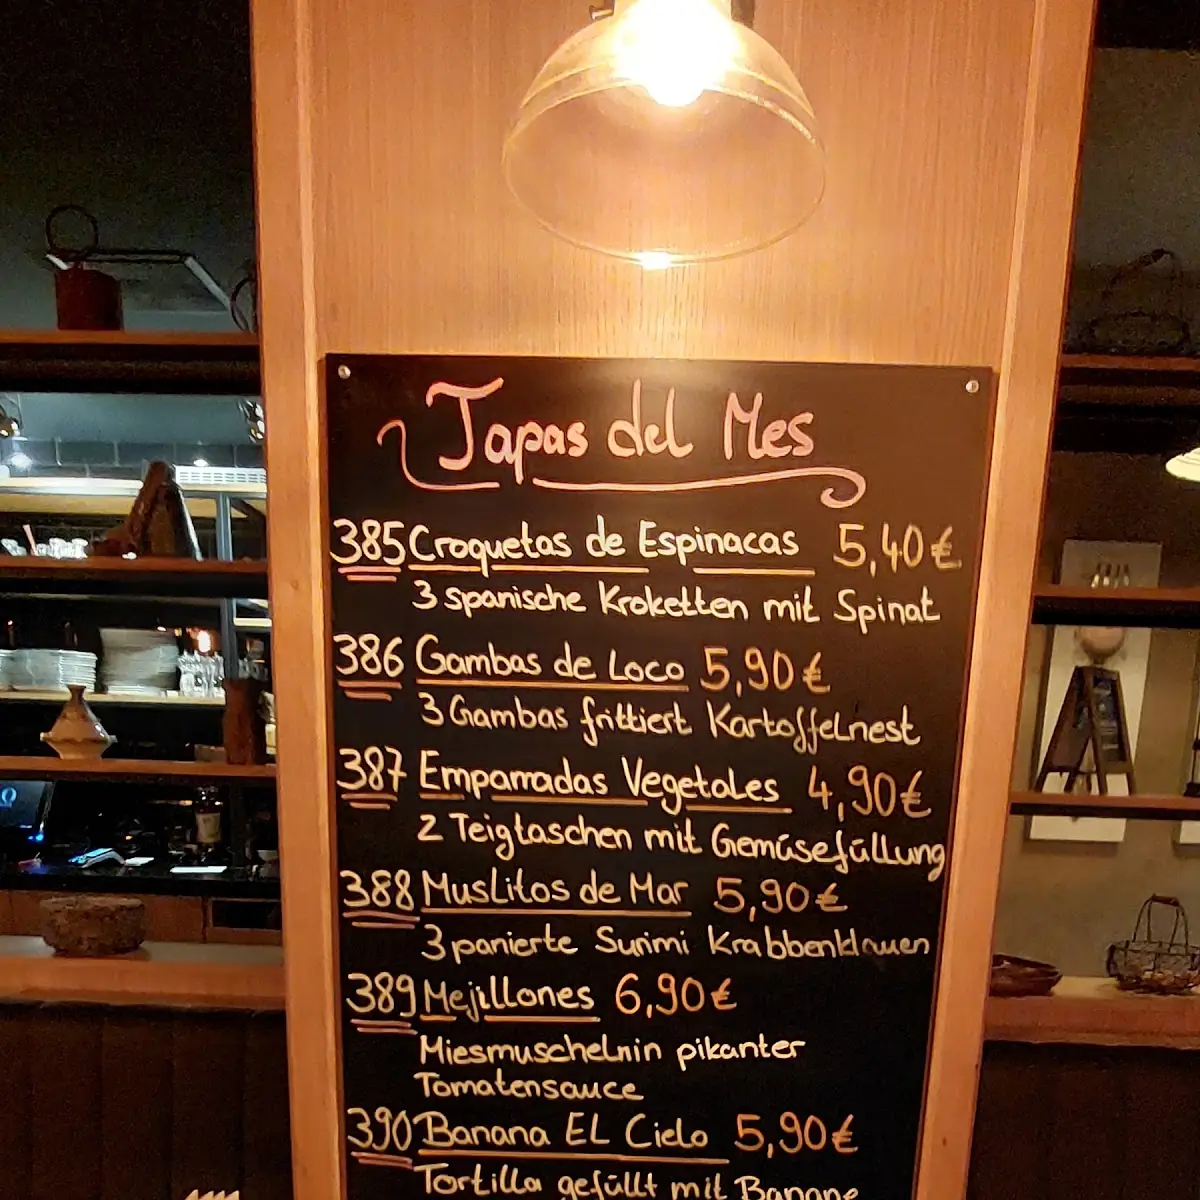 Tapas del Mes
385 Croquetas de Espinacas 5,40€
3 spanische Kroketten mit Spinat
386 Gambas de Loco 5,90€
3 Gambas frittiert Kartoffelnest
387 Emparradas Vegetales 4,90€
2 Teigtaschen mit Gemüsefüllung
388 Muslitos de Mar 5,90€
3 panierte Surimi Krabbenklauen
389 Mejillones 6,90€
Miesmuschelnin pikanter
Tomatensauce
390 Banana EL Cielo 5,90€
Tortilla gefüllt mit Banane